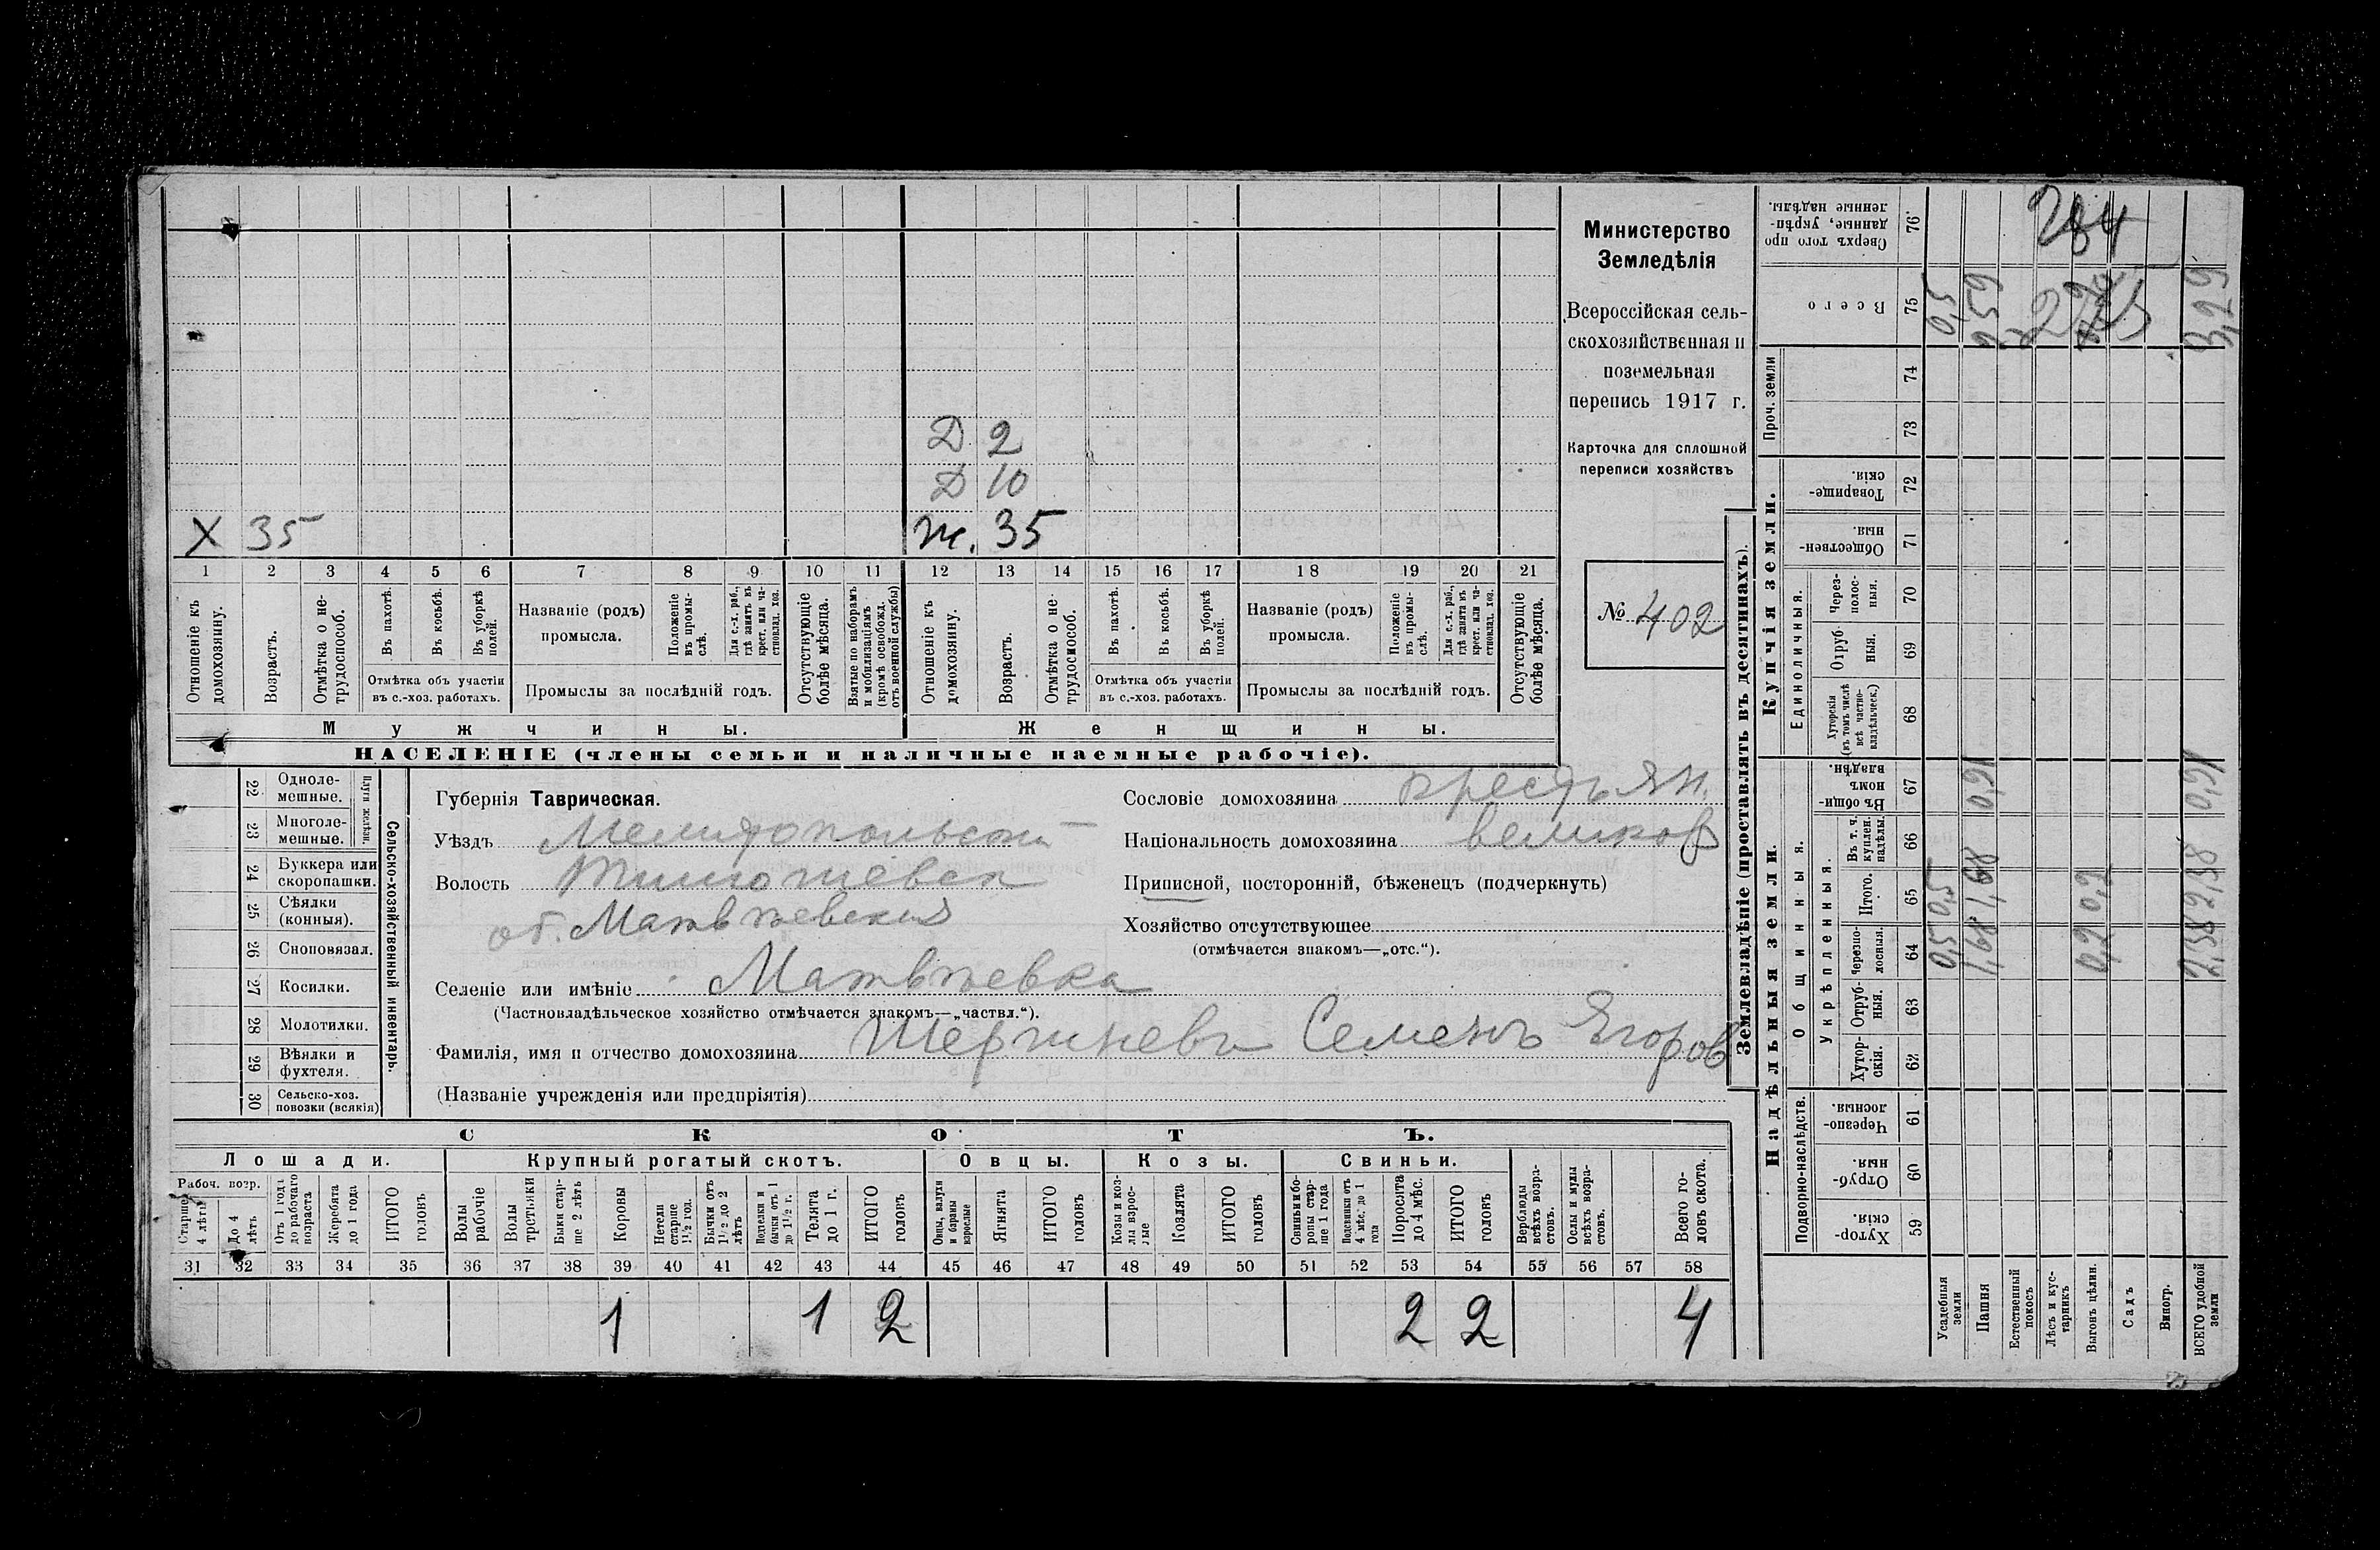 Министерство
Земледѣлія
Всероссійская сель-
скохозяйственная и
поземельная
перепись 1917 г.
Карточка для сплошной
переписи хозяйствъ
№ 402
Д 2
Д 10
Х 35
ж. 35
1 2 3 4 5 6 7 8 9 10 11 12 13 14 15 16 17 18 19 20 21
Отношеніе къ домохозяину.
Возрастъ.
Отмѣтка о не-трудоспособ.
Въ пахотѣ.
Въ косьбѣ.
Въ уборкѣ полей.
Отмѣтка объ участіи
въ с.-хоз. работахъ.
Названіе (родъ)
промысла.
Положеніе въ промы-слѣ.
Для с.-х. раб., гдѣ занятъ въ крест. или ча-стновлад. хоз.
Промыслы за послѣдній годъ.
Отсутствующіе болѣе мѣсяца.
Взятые по наборамъ и мобилизаціямъ (кромѣ освобожд. отъ военной службы)
Отношеніе къ домохозяину.
Возрастъ.
Отмѣтка о не-трудоспособ.
Въ пахотѣ.
Въ косьбѣ.
Въ уборкѣ полей.
Отмѣтка объ участіи
въ с.-хоз. работахъ.
Названіе (родъ)
промысла.
Положеніе въ промы-слѣ.
Для с.-х. раб., гдѣ занята въ крест. или ча-стновлад. хоз.
Промыслы за послѣдній годъ.
Отсутствующіе болѣе мѣсяца.
Мужчины.
Женщины.
НАСЕЛЕНІЕ (члены семьи и наличные наемные рабочіе).
22 Одноле-мешные.
23 Многоле-мешные.
Плуги желѣзн.
24 Буккера или скоропашки.
25 Сѣялки (конныя).
26 Сноповязал.
27 Косилки.
28 Молотилки.
29 Вѣялки и фухтеля.
30 Сельско-хоз. повозки (всякія)
Сельско-хозяйственный инвентарь.
Губернія Таврическая.
Уѣздъ Мелитопольскій
Волость Тимошевск
об. Матвѣевския
Селеніе или имѣніе Матвѣевка
(Частновладѣльческое хозяйство отмѣчается знакомъ—„частвл.“).
Фамилія, имя и отчество домохозяина Шершневъ Семенъ Егоров
(Названіе учрежденія или предпріятія)
Сословіе домохозяина крестьян.
Національность домохозяина великор
Приписной, посторонній, бѣженецъ (подчеркнуть)
Хозяйство отсутствующее
(отмѣчается знакомъ—„отс.“).
СКОТЪ.
Лошади. Крупный рогатый скотъ. Овцы. Козы. Свиньи.
Рабоч. возр.
Старше 4 лѣтъ
До 4 лѣтъ
Отъ 1 года до рабочаго возраста
Жеребята до 1 года
ИТОГО головъ
Волы рабочіе
Волы третьяки
Быки стар-ше 2 лѣтъ
Коровы
Нетели старше 1½ год.
Бычки отъ 1½ до 2 лѣтъ
Подтелки и бычки отъ 1 до 1½ г.
Телята до 1 г.
ИТОГО головъ
Овцы, валухи и бараны взрослые
Ягнята
ИТОГО головъ
Козы и коз-лы взрос-лые
Козлята
ИТОГО головъ
Свиньи и бо-ровы стар-ше 1 года
Подсвинки отъ 4 мѣс. до 1 года
Поросята до 4 мѣс.
ИТОГО головъ
Верблюды всѣхъ возра-стовъ.
Ослы и мулы всѣхъ возра-стовъ.
Всего го-ловъ скота.
31 32 33 34 35 36 37 38 39 40 41 42 43 44 45 46 47 48 49 50 51 52 53 54 55 56 57 58
1 1 2 2 2 4
Землевладѣніе (проставлять въ десятинахъ).
Надѣльныя земли.
Подворно-наслѣдств.
Хутор-скія. 59
Отруб-ныя. 60
Черезпо-лосныя. 61
Общинныя.
Укрѣпленныя.
Хутор-скія. 62
Отруб-ныя. 63
Черезпо-лосныя. 64
Итого. 65
Въ т. ч. куплен. надѣлы. 66
Въ общи-номъ владѣн. 67
Купчія земли.
Единоличныя.
Хуторскія (въ томъ числѣ всѣ частно-владѣльческ.) 68
Отруб-ныя. 69
Через-полос-ныя. 70
Обществен-ныя. 71
Товарище-скія. 72
Проч. земли
73
74
Всего 75
Сверхъ того про-данные, укрѣп-ленные надѣлы. 76
Усадебныя земли 0,5 0,5 0,5
Пашня 1,68 1,68 0,91 2,59
Естественный покосъ
Лѣсъ и кус-тарникъ
Выгонъ цѣлин. 0,2 0,2
Садъ
Виногр.
ВСЕГО удобной земли 2,38 2,38 0,91 3,29